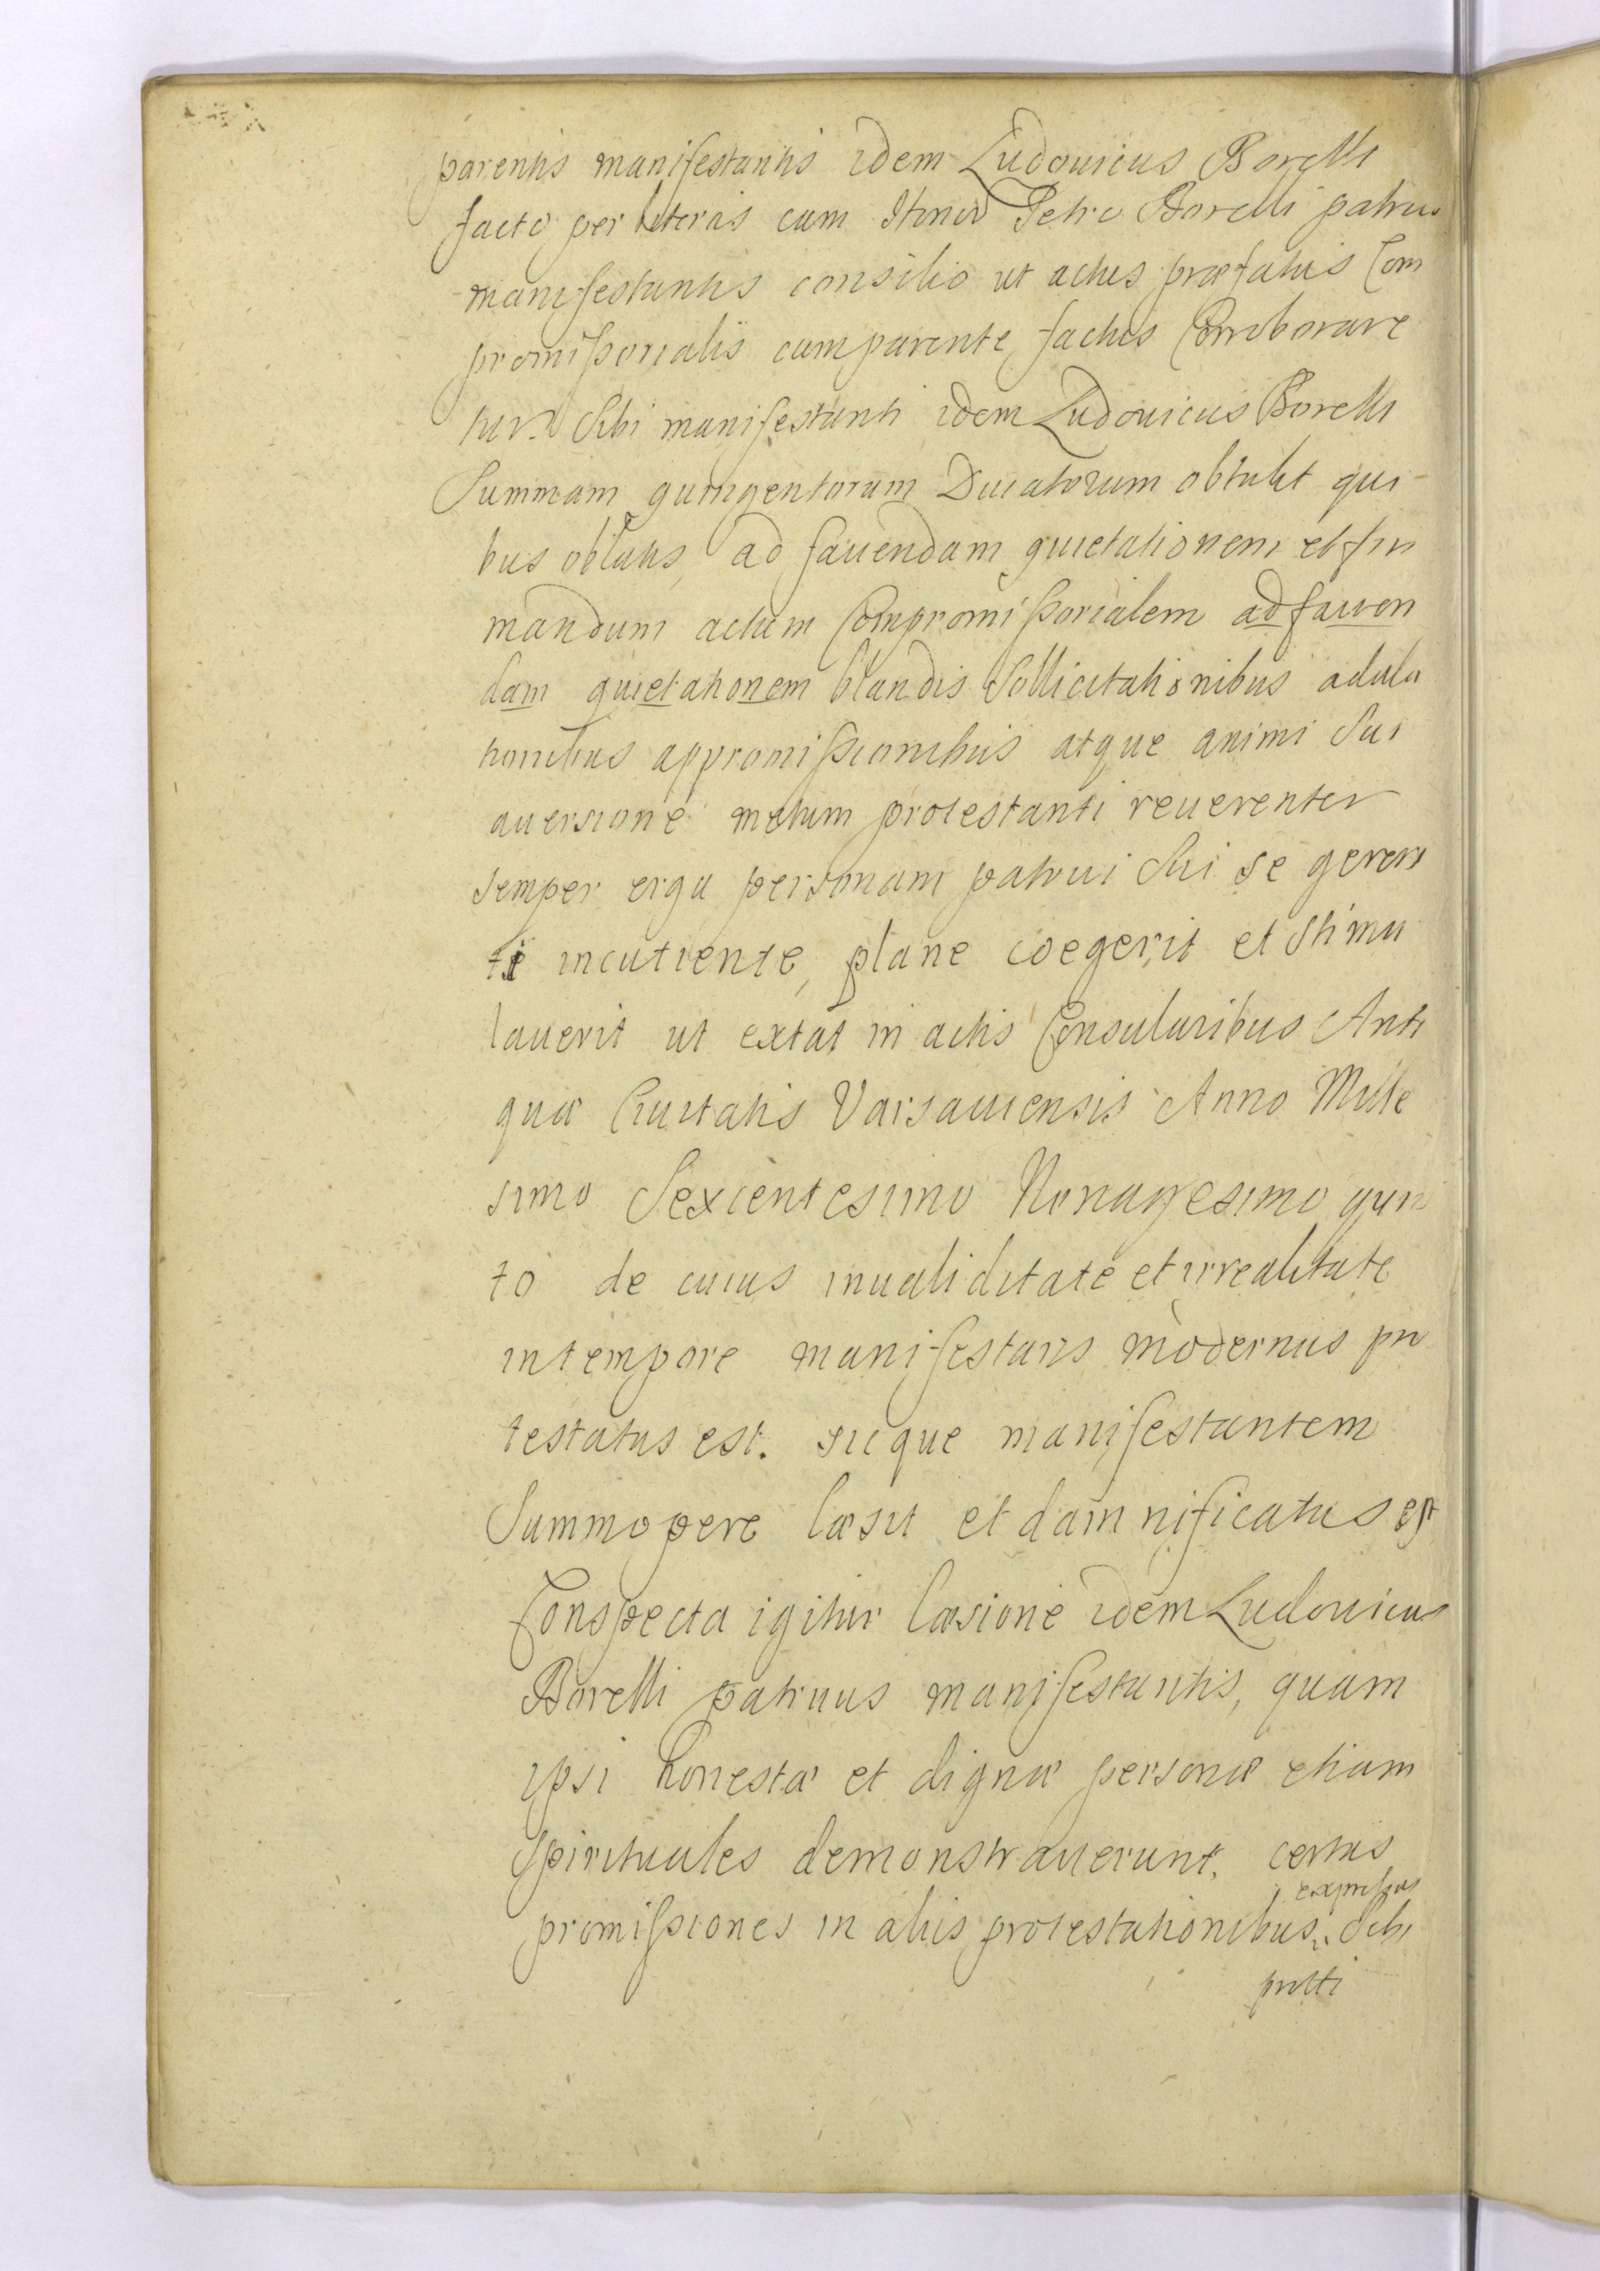 parentis manifestantis idem Ludouicus Borelli
facto per literas cum Honor Petro Borelli patruo
manifestantis consilio ut actus præfatus Com
promissorialis cum parente factus Corroborare
tur. Sibi manifestanti idem Ludouicus Borelli
Summam quingentorum Ducatorum obtulit qui
bus oblatis, ad fauendam quietationem et fir
mandum actum Compromissorialem ad fauen
dam quietationem blandis Sollicitationibus adula
tionibus appromissionibus atque animi Sui
auersione metum protestanti reuerenter
semper erga personam patrui Sui se geren
ti incutiente, plane coegerit et Stimu
lauerit ut extat in actis Consularibus Anti
quæ Ciuitatis Varsauiensis Anno Mille
simo Sexcentesimo Nonagesimo quin
to de cuius inualiditate et irrealitate
in tempore manifestans modernus pro
testatus est. sicque manifestantem
Summopere læsit et damnificatus est
Conspecta igitur læsione idem Ludouicus
Borelli patruus manifestantis, quam
ipsi honestæ et dignæ personæ etiam
Spirituales demonstrauerunt. certas
expressas
promissiones in aliis protestationibus Sibi